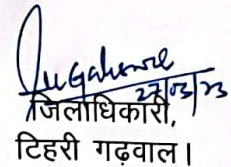 27/03/23
जिलाधिकारी,
टिहरी गढ़वाल।